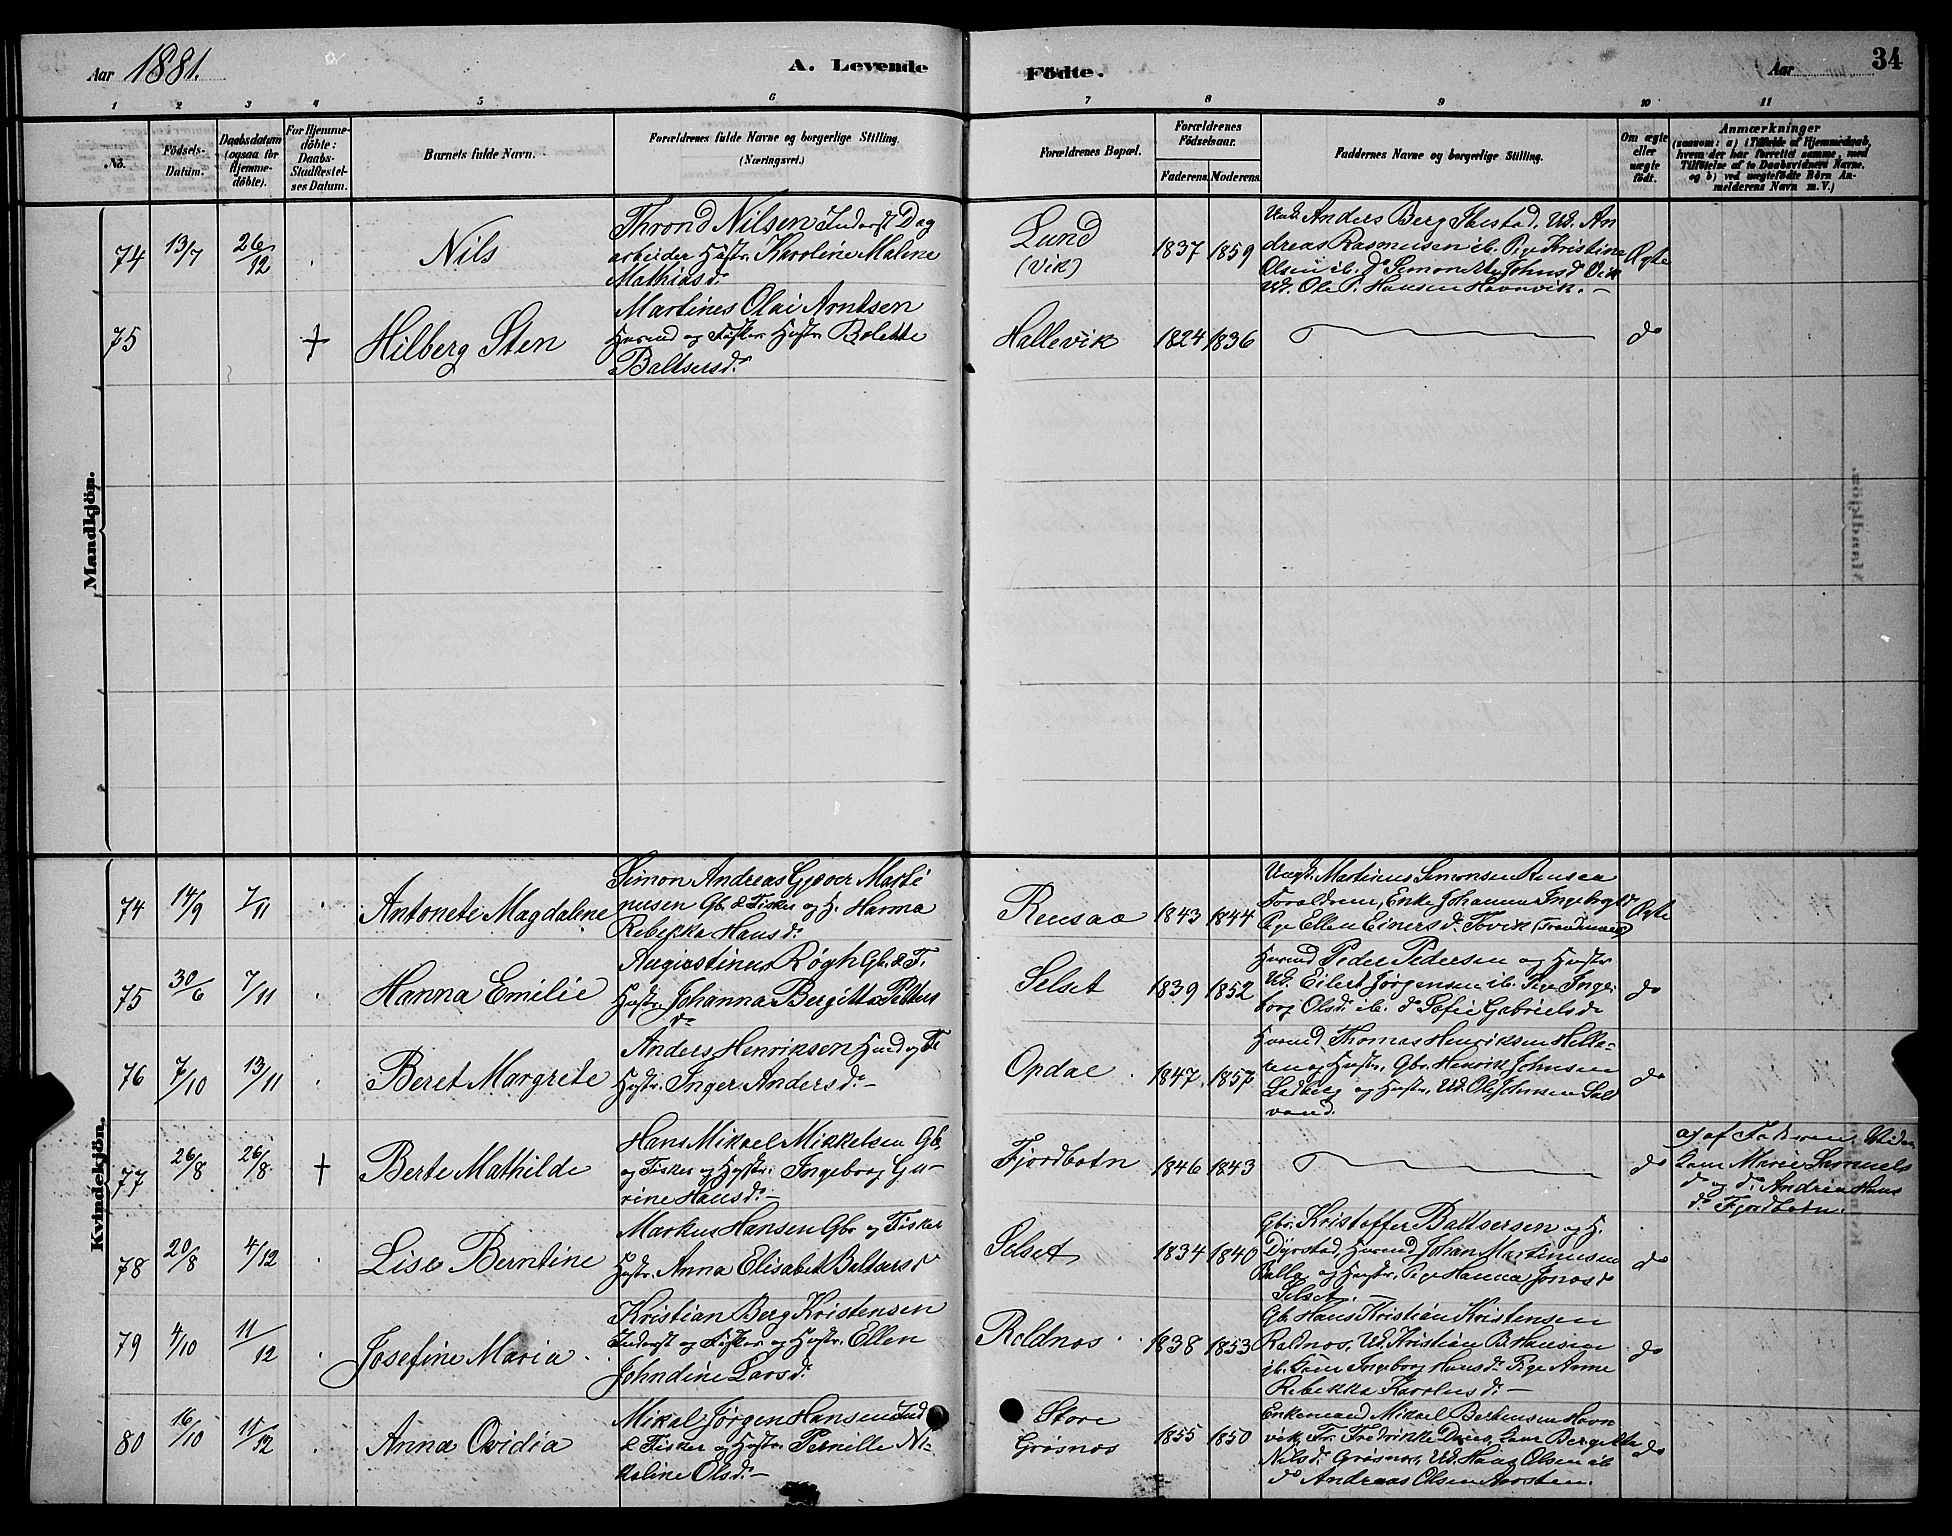 Aar 1881.
A. Levende
Födte.
Aar
34
1 2 3 4 5 6 7 8 9 10 11
No.
Födsels-
Datum.
Daabsdatum
(ogsaa for
Hjemme-
döbte).
For Hjemme-
döbte:
Daabs-
Stadfestel-
ses Datum.
Barnets fulde Navn.
Forældrenes fulde Navne og borgerlige Stilling.
(Næringsvei.)
Forældrenes Bopæl.
Forældrenes
Födselsaar.
Faderens. Moderens.
Faddernes Navne og borgerlige Stilling.
Om ægte
eller
uægte
födt.
Anmærkninger
(saasom: a) i Tilfælde af Hjemmedaab,
hvem der har forrettet samme, med
Tilföielse af to Daabsvidners Navne,
og b) ved uægtefödte Börn An-
melderens Navn m. V.)
Mandkjön.
74 13/7 26/12
Nils
Thrond Nilsen Inderst Dag
arbeider Hustr. Karoline Malene
Mathiasdr
Lund
(Vik)
1837 1859
Anders Berg Ibestad, Uk. An
dreas Rasmussen ib. Pige Kristine
Olsen ib. do Simon Johnsd Vik
Uk. Ole P. Hansen Havnvik. –
Ægte
75 +
Hilberg Sten
Martines Olai Arntsen
Husmd og Fisker Hustr. Bolette
Baltsersdr
Hallevik
1824 1836
do
Kvindekjön.
74 14/9 7/11
Antonete Magdalene
Simon Andreas Gjæver Marti
nusen Gb. & Fisker og H. Hanna
Rebekka Hansdr
Rensaa
1843 1844
Martinus Simonsen Rensaa
Forældrene, Enke Johanna Ingebrgtd
Pige Ellen Einersd. Tovik (Trondenæs)
Ægte
75 30/6 7/11
Hanna Emilie
Augustinus Røgh Gb. & F.
Hustr. Johanna Bergitta Petters
dr
Selset
1839 1852
Husmd Peder Pedersen og Hustr
Uk. Eilert Jørgensen ib. Pige Inge
borg Olsdr ib. do Sofie Gabrielsdr
do
76 7/10 13/11
Beret Margrete
Anders Henriksen Husmd og F.
Hustr. Inger Andersdr –
Opdal
1847. 1857
Husmd Thomas Henriksen Helle-
ren og Hustr, Gbr. Henrik Johnsen
Ledberg og Hustr, Uk. Ole Johnsen Sal
vand.
do
77 26/8 26/8 +
Berte Mathilde
Hans Mikael Mikkelsen Gb.
og Fisker og Hustr. Ingeborg Gu-
rine Hansdr –
Fjordbotn
1846 1843
do
a) af Faderen
Marie Samuels
dr og do Andrea Hans
dr Fjordbotn.
78 20/8 4/12
Lise Berntine
Markus Hansen Gbr og Fisker
Hustr. Anna Elisabet Baltsersdr
Selset
1834 1840
Gbr. Kristoffer Baltsersen og H.
Dyrstad, Husmd Johan Martinussen
Balla og Hustr, Pige Hanna Jonasdr
Selset. –
do
79 4/10 11/12
Josefine Maria
Kristian Berg Kristensen
Inderst og Fisker og Hustr. Ellen
Johndine Larsdr
Roldnos
1838 1853
Gb. Hans Kristian Kristensen
Roldnos, Uk. Kristian B. Hansen
ib. Ingeborg Hansdr Pige Anne
Rebekka Karolusdr –
do
80 16/10 11/12
Anna Ovidia
Mikal Jørgen Hansen Ind
& Fisker og Hustr. Pernille Ni-
koline Olsdr –
Store
Grøsnos
1855 1850
Enkemand Mikael Bertensen Havn
vik Fr. Fredrikke Bergitte
Nilsdr Grøsnos, Uk. Hans Olsen ib
do Andreas Olsen
do